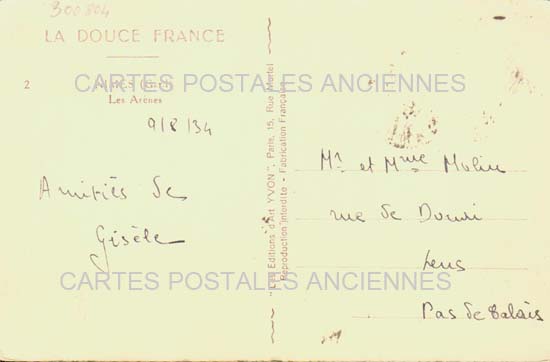 300804
LA DOUCE FRANCE
2 NIMES (Gard)
Les Arènes
CARTES POSTALES ANCIENNES
9/8/34
Amitiés de
Gisèle
"Les Editions d'Art YVON", Paris, 15, Rue Martel
Reproduction interdite - Fabrication Française
Mr et Mme Molin
rue de Douai
Lens
Pas de Calais
CARTES POSTALES ANCIENNES